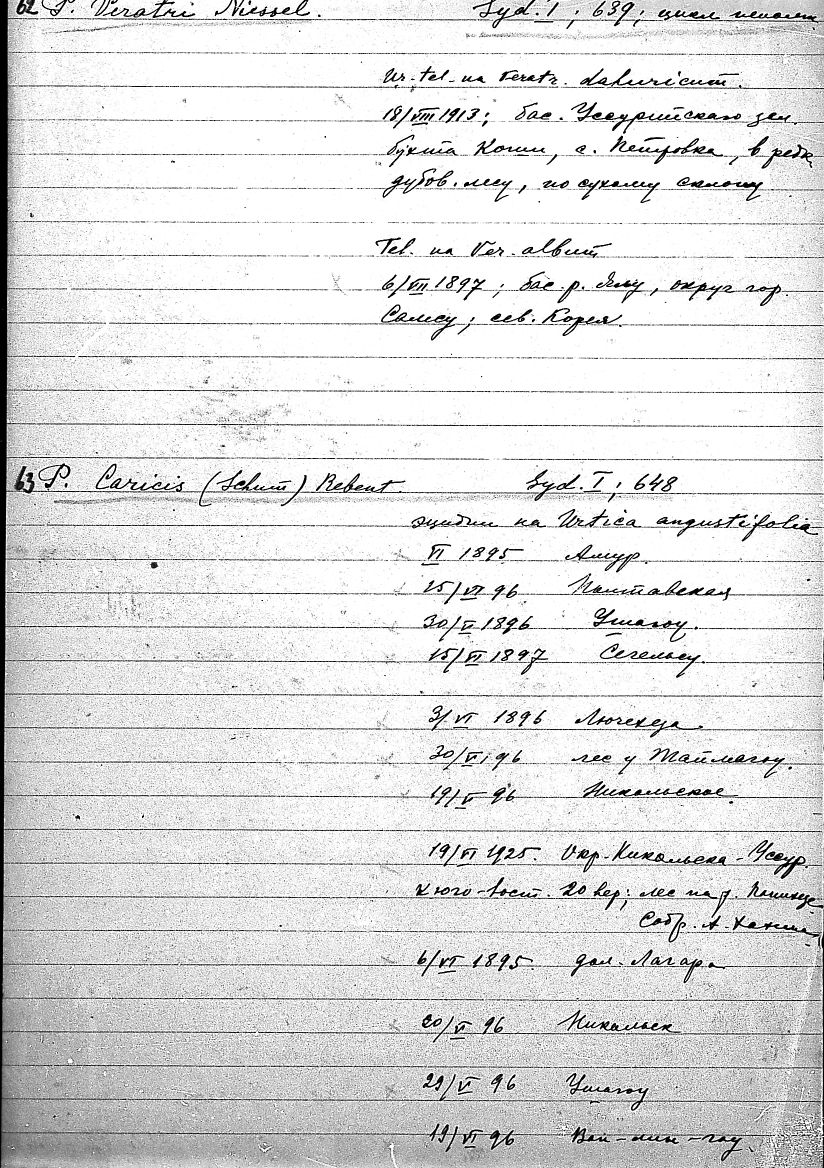 62 P. Veratri Niessl. Syd. I; 639; цикл неполн
Ur.-tel. на Veratr. dahuricum.
18/VIII 1913; бас. Уссурийскаго зал.
бухта Кошм, с. Петровка, в редк.
дубов. лесу, по сухому склону
Tel. на Ver. album
6/VII 1897; бас. р. Ялу, округ гор.
Самсу; сев. Корея.
63 P. Caricis (Schum) Rebent. Syd. I; 648
эцидии на Urtica angustifolia
VI 1895 Амур.
25/VI 96 Полтавская
30/V 1896 Ушагоу.
15/VI 1897 Сегельсу.
3/VI 1896 Лючехеза.
30/V 96 лес у Таймагоу.
19/V 96 Никольское.
19/VI 1925. Окр. Никольска-Уссур.
к юго-вост. 20 вер; лес на р.
Собр. А.
6/VI 1895 дол. Лагара
20/V 96 Никольск
29/V 96 Ушагоу
19/VI 96 Вай-мин-гоу.